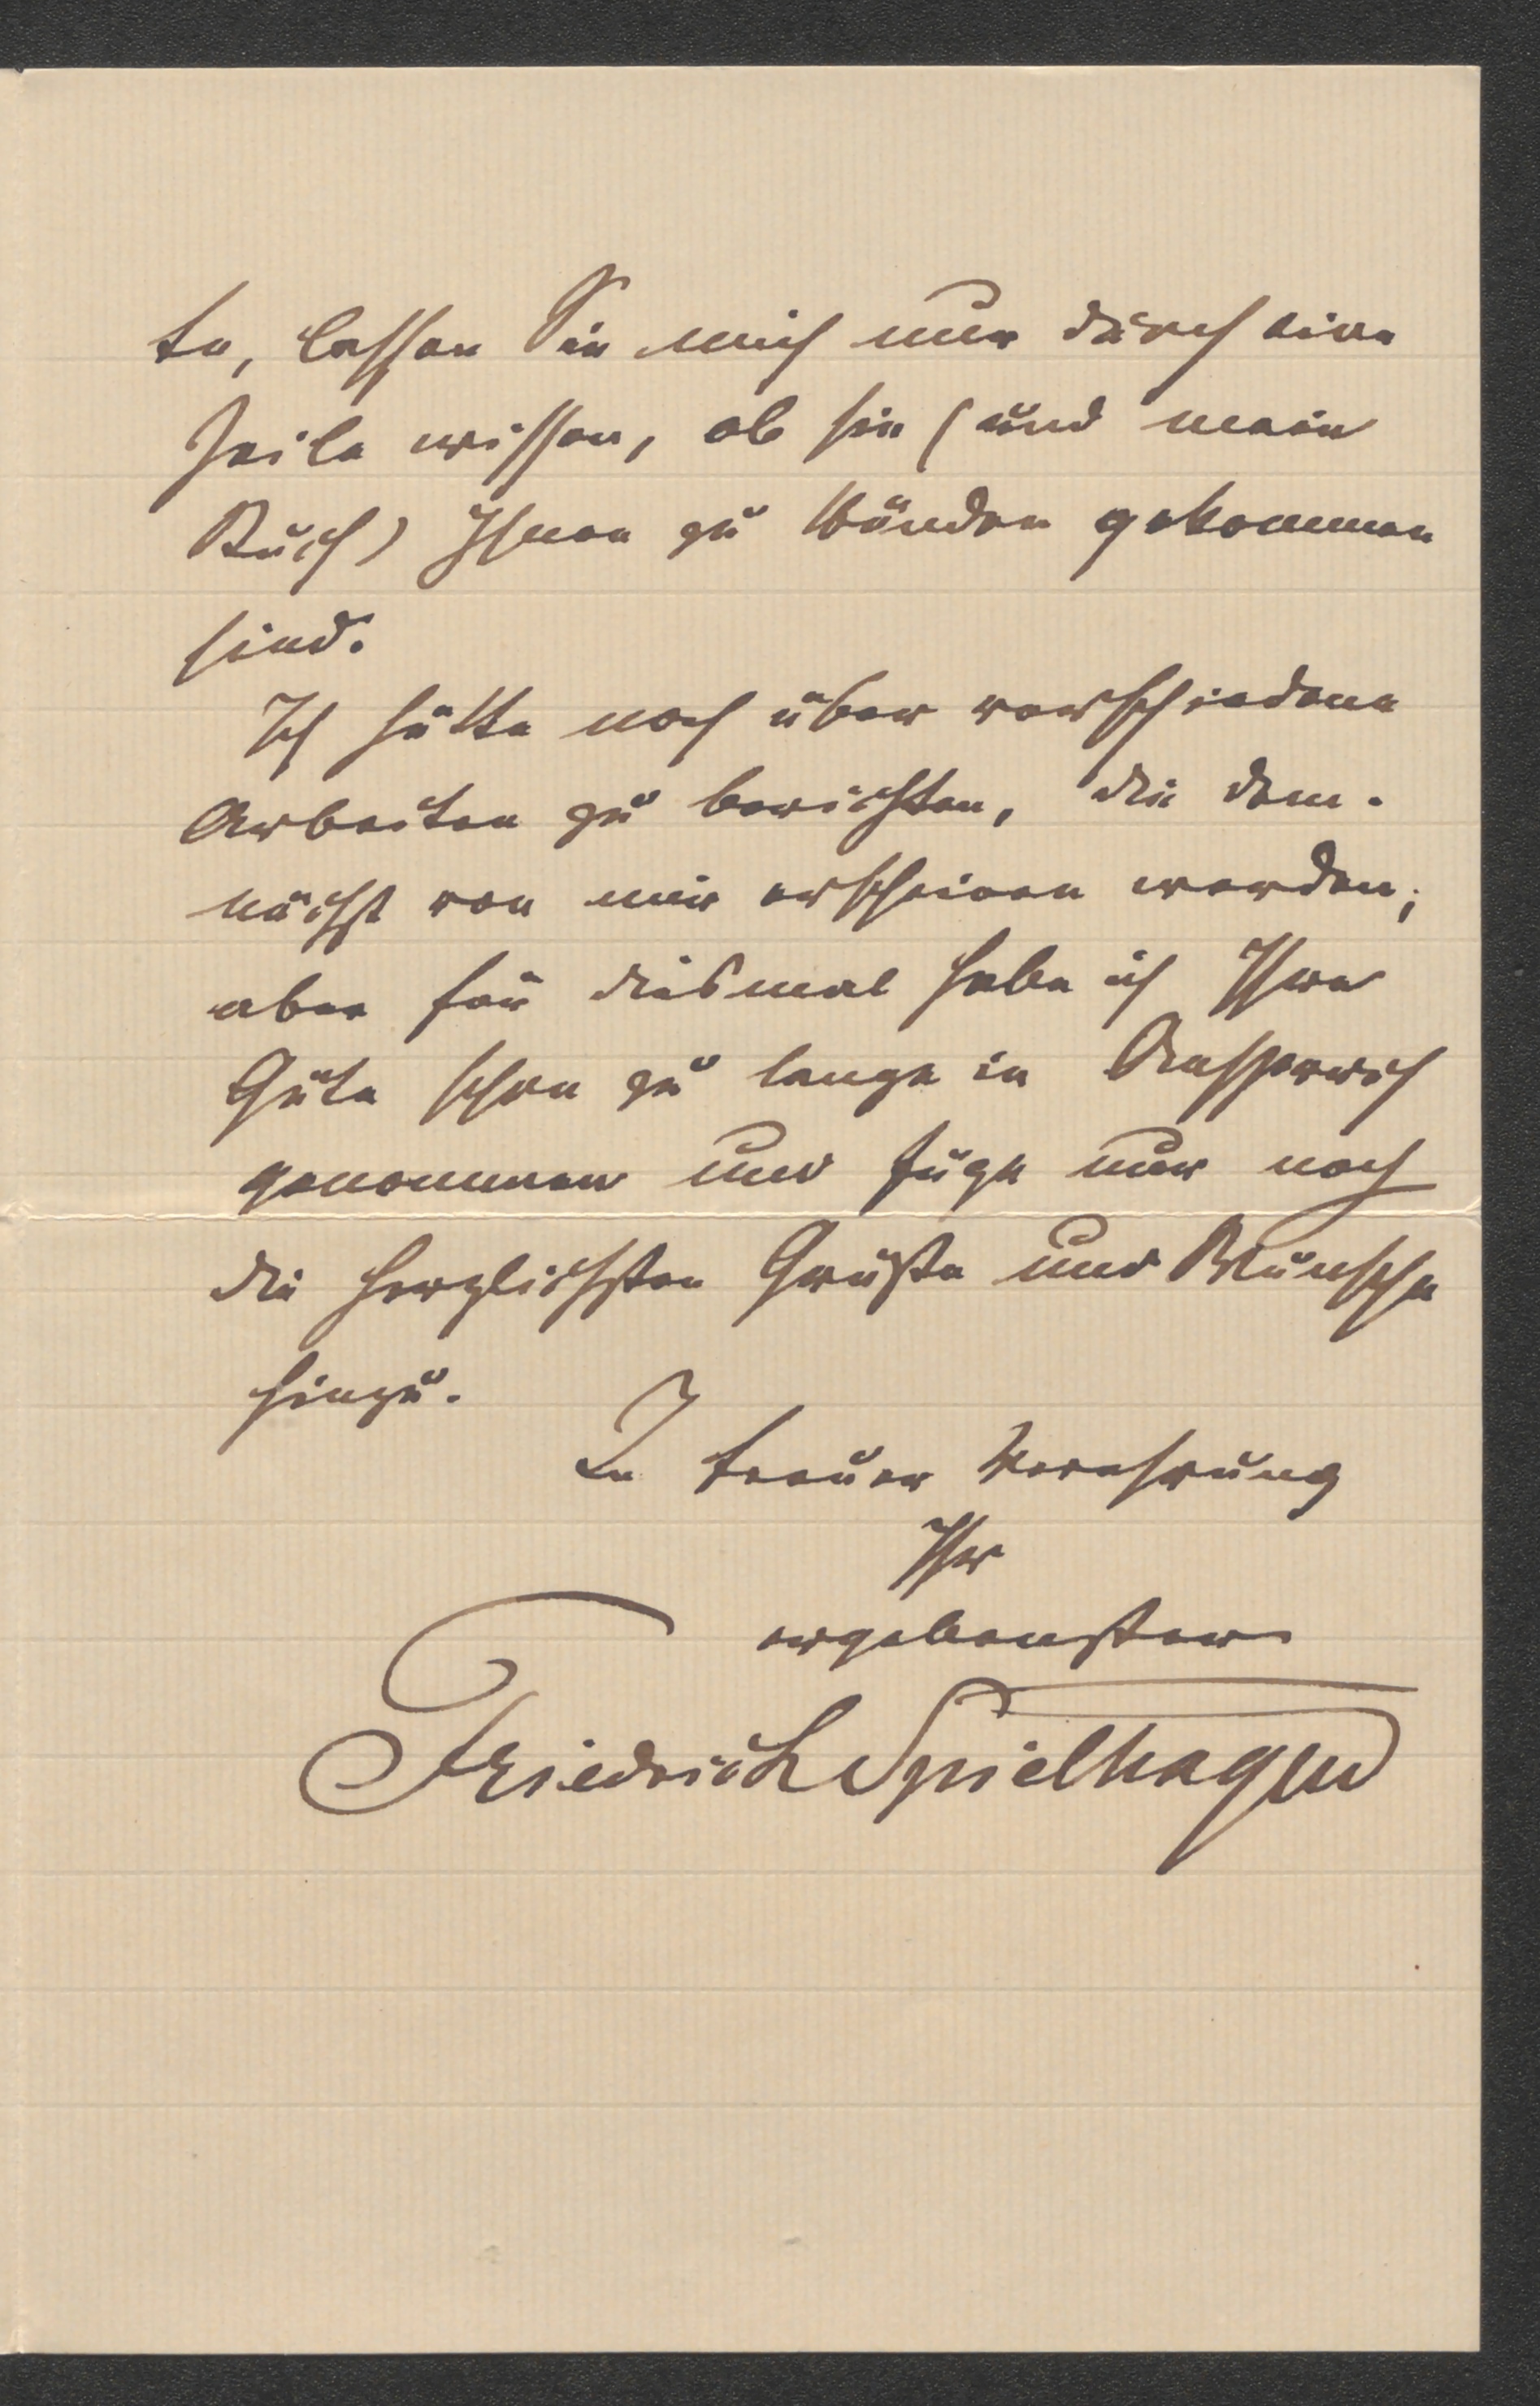 te, lassen Sie mich nur durch eine
Zeile wissen, ob sie (und mein
Buch) Ihnen zu Händen gekommen
sind.
Ich hätte noch über verschiedene
Arbeiten zu berichten, die dem-
nächst von mir erscheinen werden;
aber für diesmal habe ich Ihre
Güte schon zu lange in Anspruch
genommen und füge nur noch
die herzlichsten Grüße und Wünsche
hinzu.
In treuer Verehrung
Ihr
ergebenster
Friedrich Spielhagen